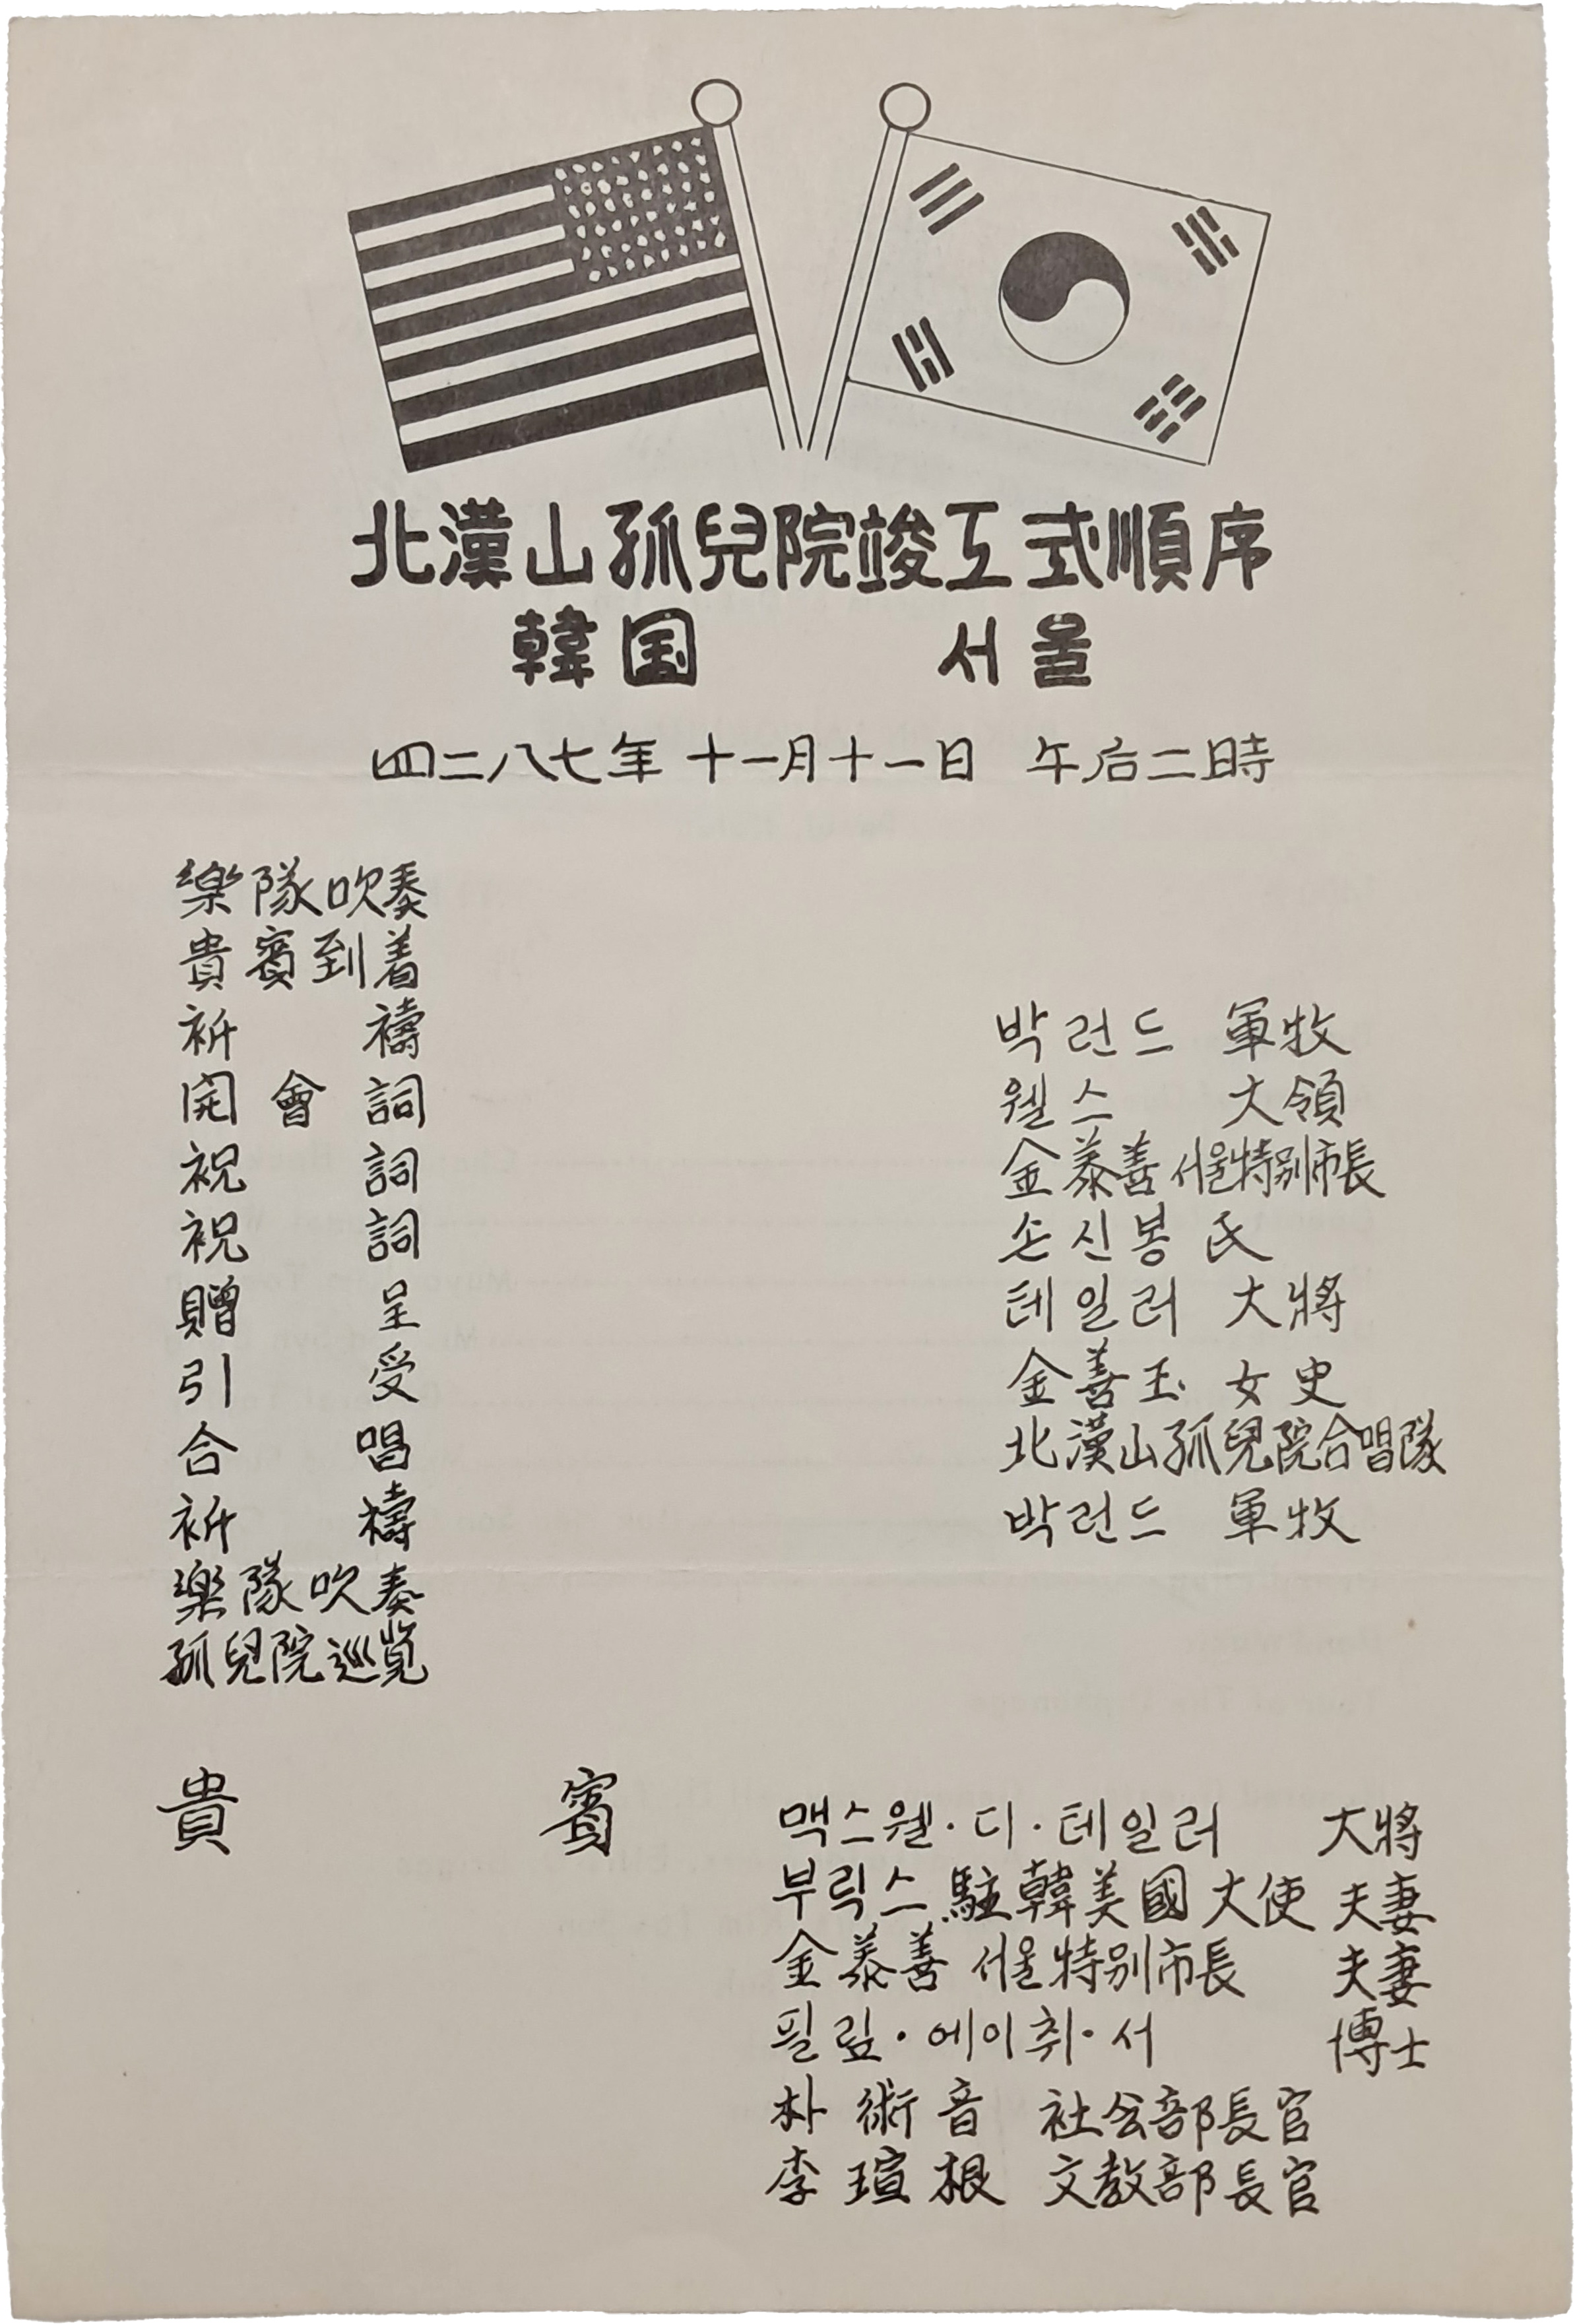 北漢山孤兒院竣工式順序
韓国 서울
四二八七年 十一月十一日 午后二時
楽隊吹奏
貴賓到着
祈禱 박런드 軍牧
開會詞 웰스 大領
祝詞 金泰善 서울特別市長
祝詞 손신봉 氏
贈呈 테일러 大將
引受 金善玉 女史
合唱 北漢山孤兒院合唱隊
祈禱 박런드 軍牧
楽隊吹奏
孤兒院巡覧
貴賓 맥스웰·디·테일러 大將
부릭스 駐韓美國大使 夫妻
金泰善 서울特別市長 夫妻
필맆·에이취·서 博士
朴術音 社会部長官
李瑄根 文教部長官